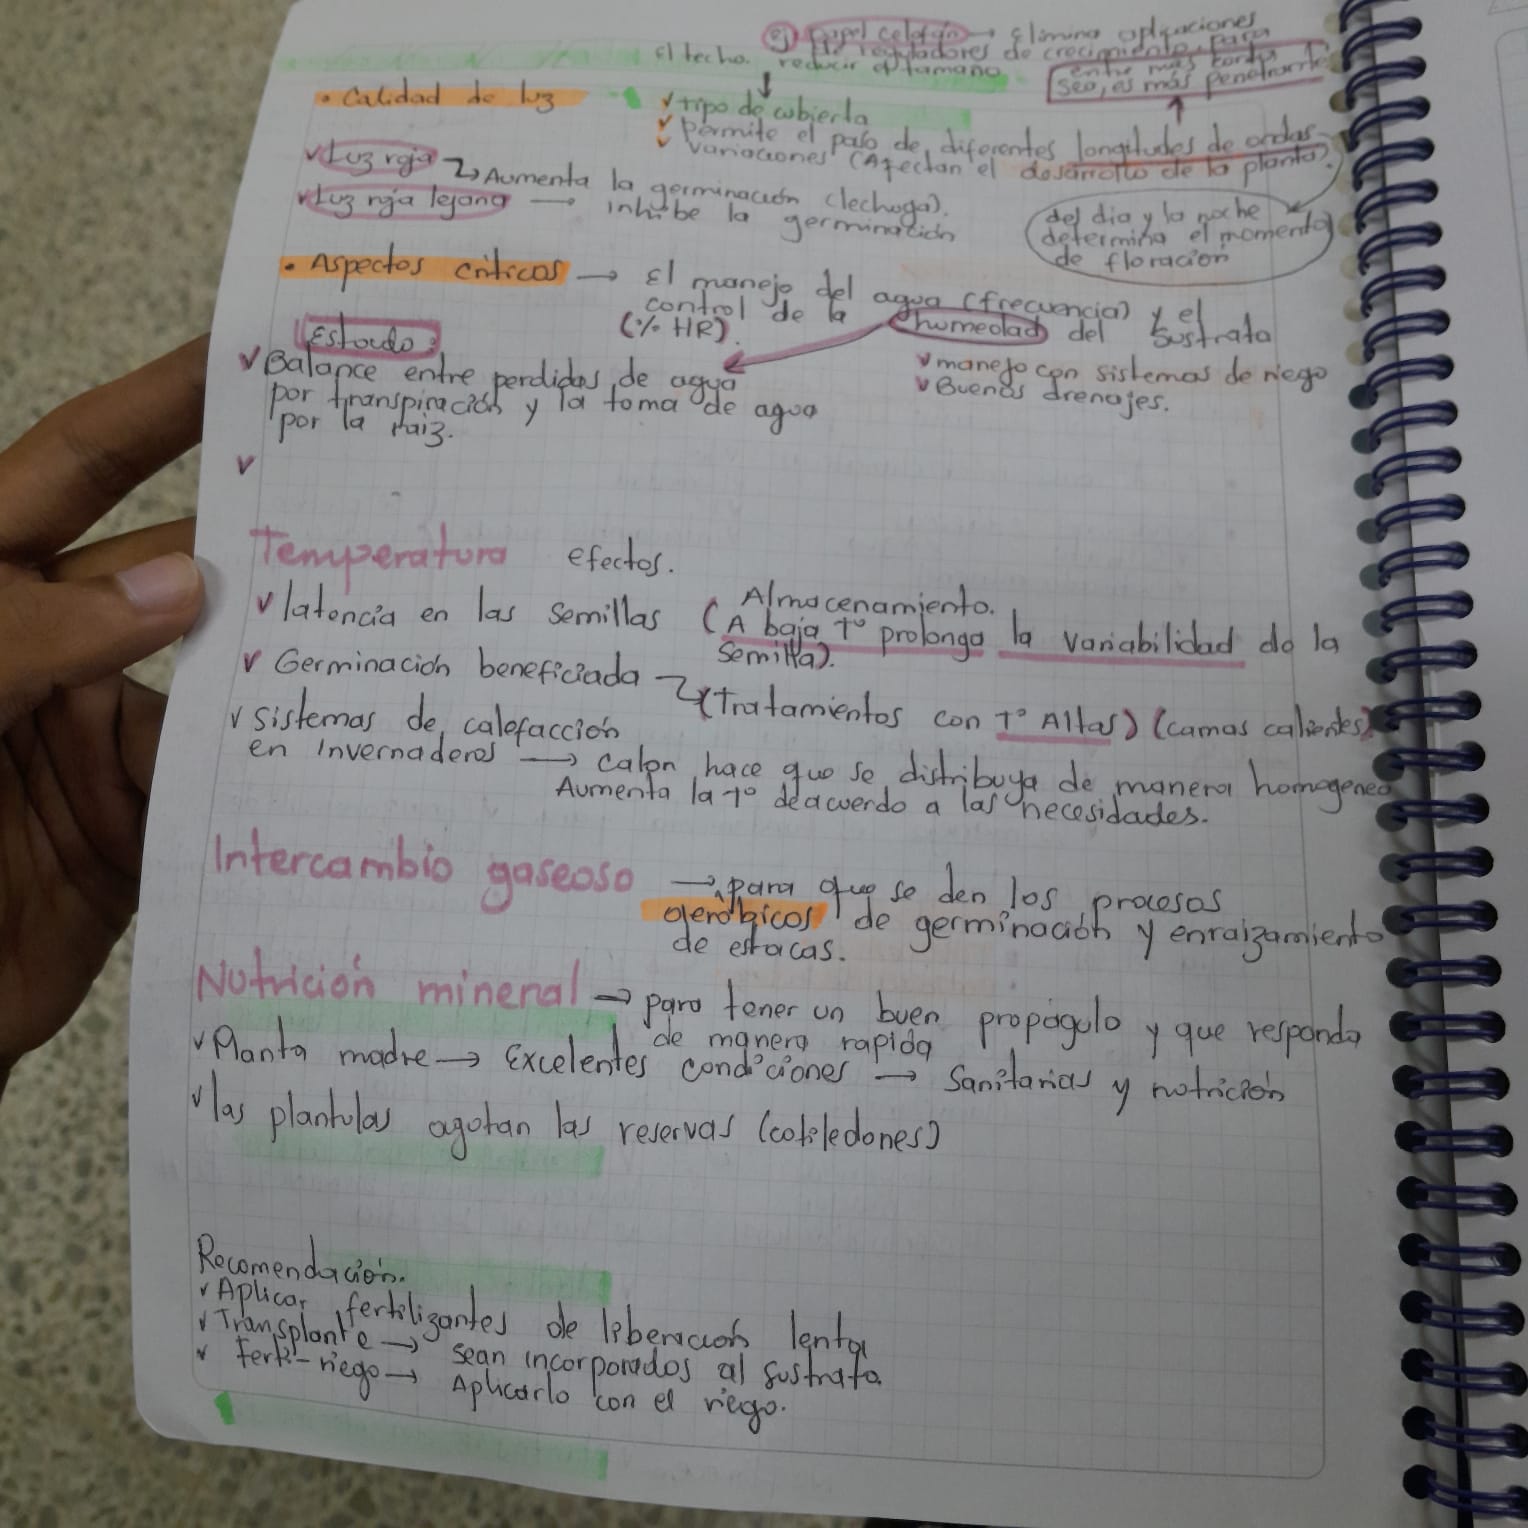 ej papel celofán → Elimina aplicaciones
El techo. de reguladores de crecimiento, para
reducir el tamaño
entre más corta
sea, es más penetrante
• Calidad de luz
✓ tipo de cubierta
✓ Permite el paso de diferentes longitudes de ondas
✓ variaciones (Afectan el desarrollo de la planta).
✓ Luz roja → Aumenta la germinación (lechuga).
✓ Luz roja lejana → inhibe la germinación
del dia y la noche
determina el momento
de floración
• Aspectos críticos → El manejo del agua (frecuencia) y el
control de la humedad del sustrato
(% HR).
Estado:
✓ Balance entre perdidas de agua
por transpiración y la toma de agua
por la raiz.
✓ manejo con sistemas de riego
✓ Buenos drenajes.
✓
Temperatura efectos.
✓ latencia en las semillas ( Almacenamiento.
A baja T° prolonga la variabilidad de la
semilla).
✓ Germinación beneficiada → (Tratamientos con T° Altas) (camas calientes)
✓ sistemas de calefacción
en invernaderos → calor, hace que se distribuya de manera homogenea
Aumenta la T° deacuerdo a las necesidades.
Intercambio gaseoso → para que se den los procesos
aeróbicos de germinación y enraizamiento
de estacas.
Nutrición mineral → para tener un buen propágulo y que responda
de manera rapida
✓ Planta madre → Excelentes condiciones → Sanitarias y nutrición
✓ las plantulas agotan las reservas (cotiledones)
Recomendación.
✓ Aplicar fertilizantes de liberación lenta
✓ Transplante → sean incorporados al sustrato.
✓ Ferti-riego → Aplicarlo con el riego.